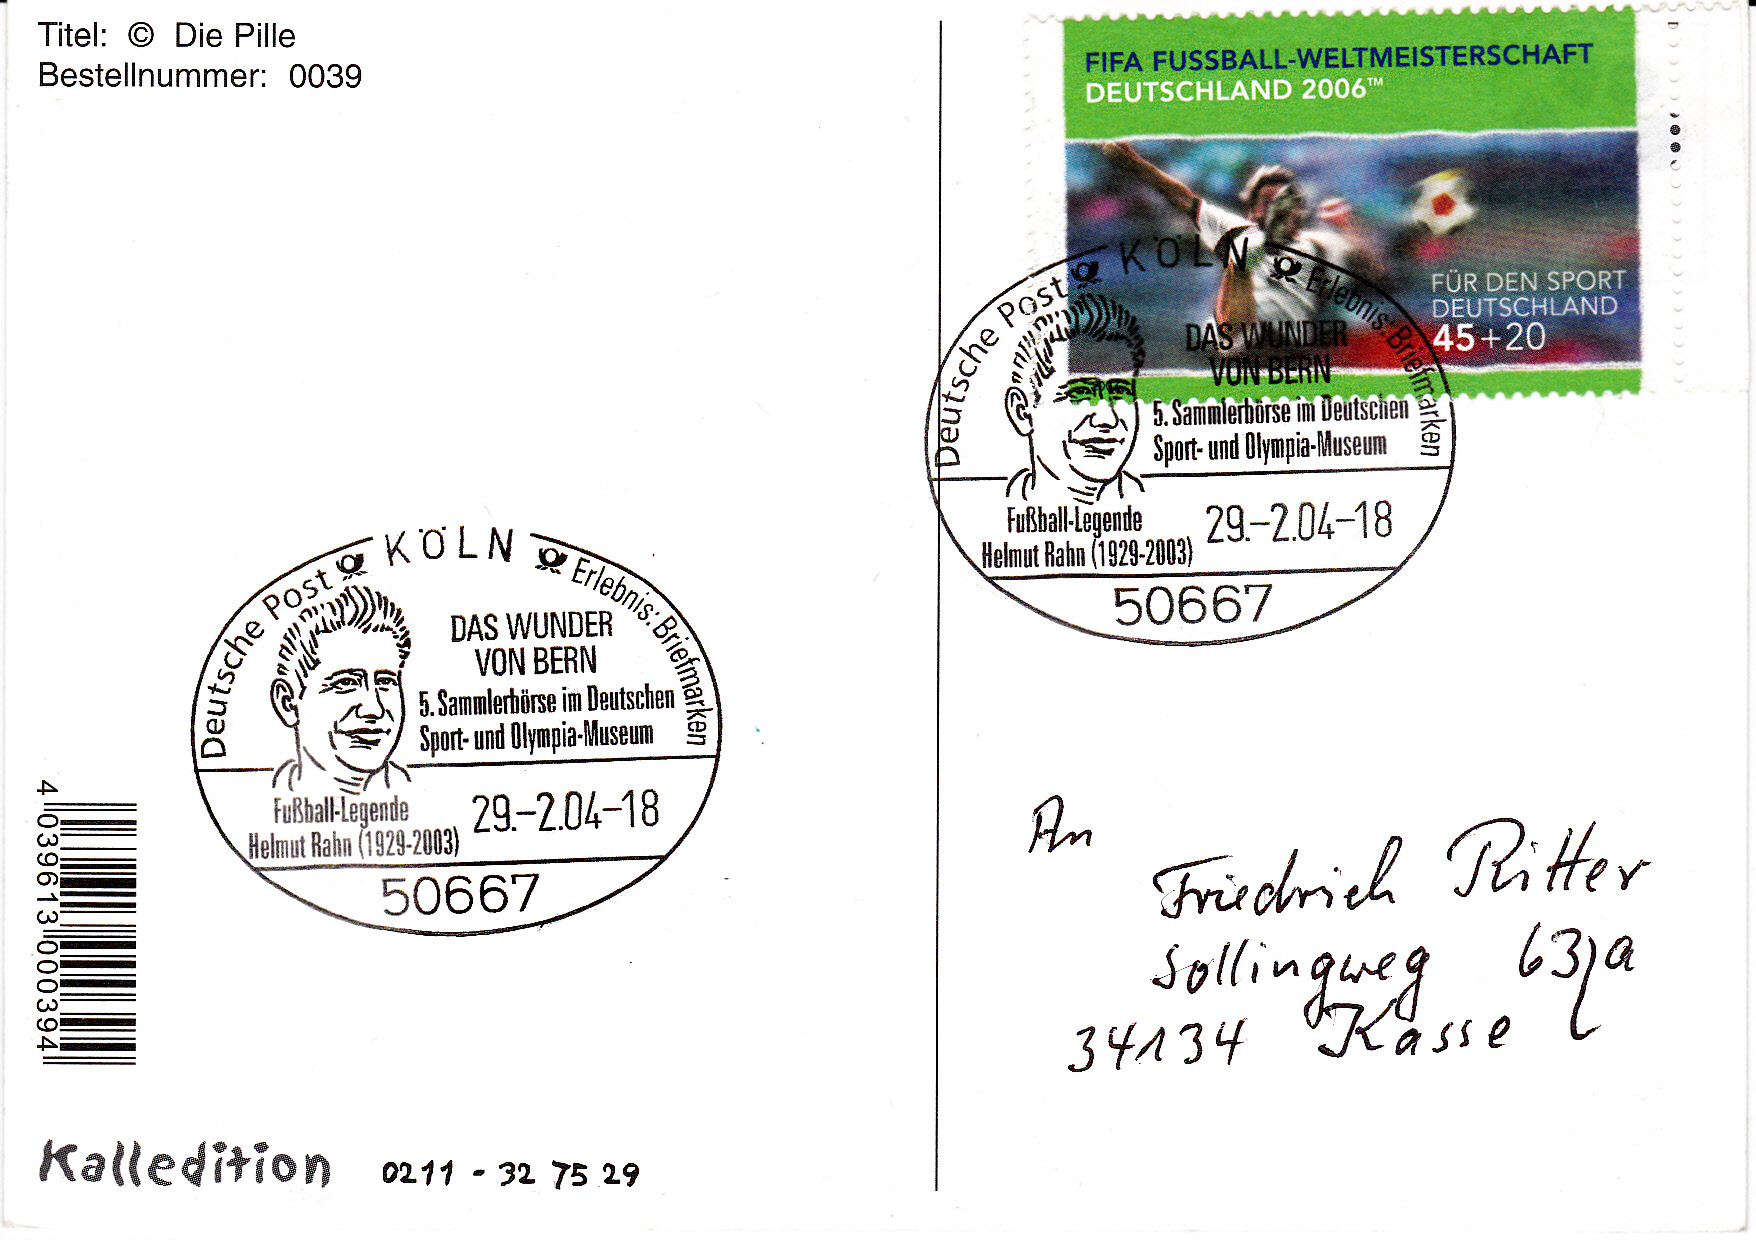 Titel: © Die Pille
Bestellnummer: 0039
FIFA FUSSBALL-WELTMEISTERSCHAFT
DEUTSCHLAND 2006™
FÜR DEN SPORT
DEUTSCHLAND
45+20
Deutsche Post KÖLN Erlebnis: Briefmarken
DAS WUNDER
VON BERN
5. Sammlerbörse im Deutschen
Sport- und Olympia-Museum
Fußball-Legende
Helmut Rahn (1929-2003)
29.-2.04-18
50667
Deutsche Post KÖLN Erlebnis: Briefmarken
DAS WUNDER
VON BERN
5. Sammlerbörse im Deutschen
Sport- und Olympia-Museum
Fußball-Legende
Helmut Rahn (1929-2003)
29.-2.04-18
50667
4 039613 000394
An
Friedrich Ritter
Sollingweg 63a
34134 Kassel
Kalledition 0211 - 32 75 29